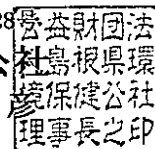 28号
公社
彦
公益財団法
人島根県環
境保健公社
理事長之印